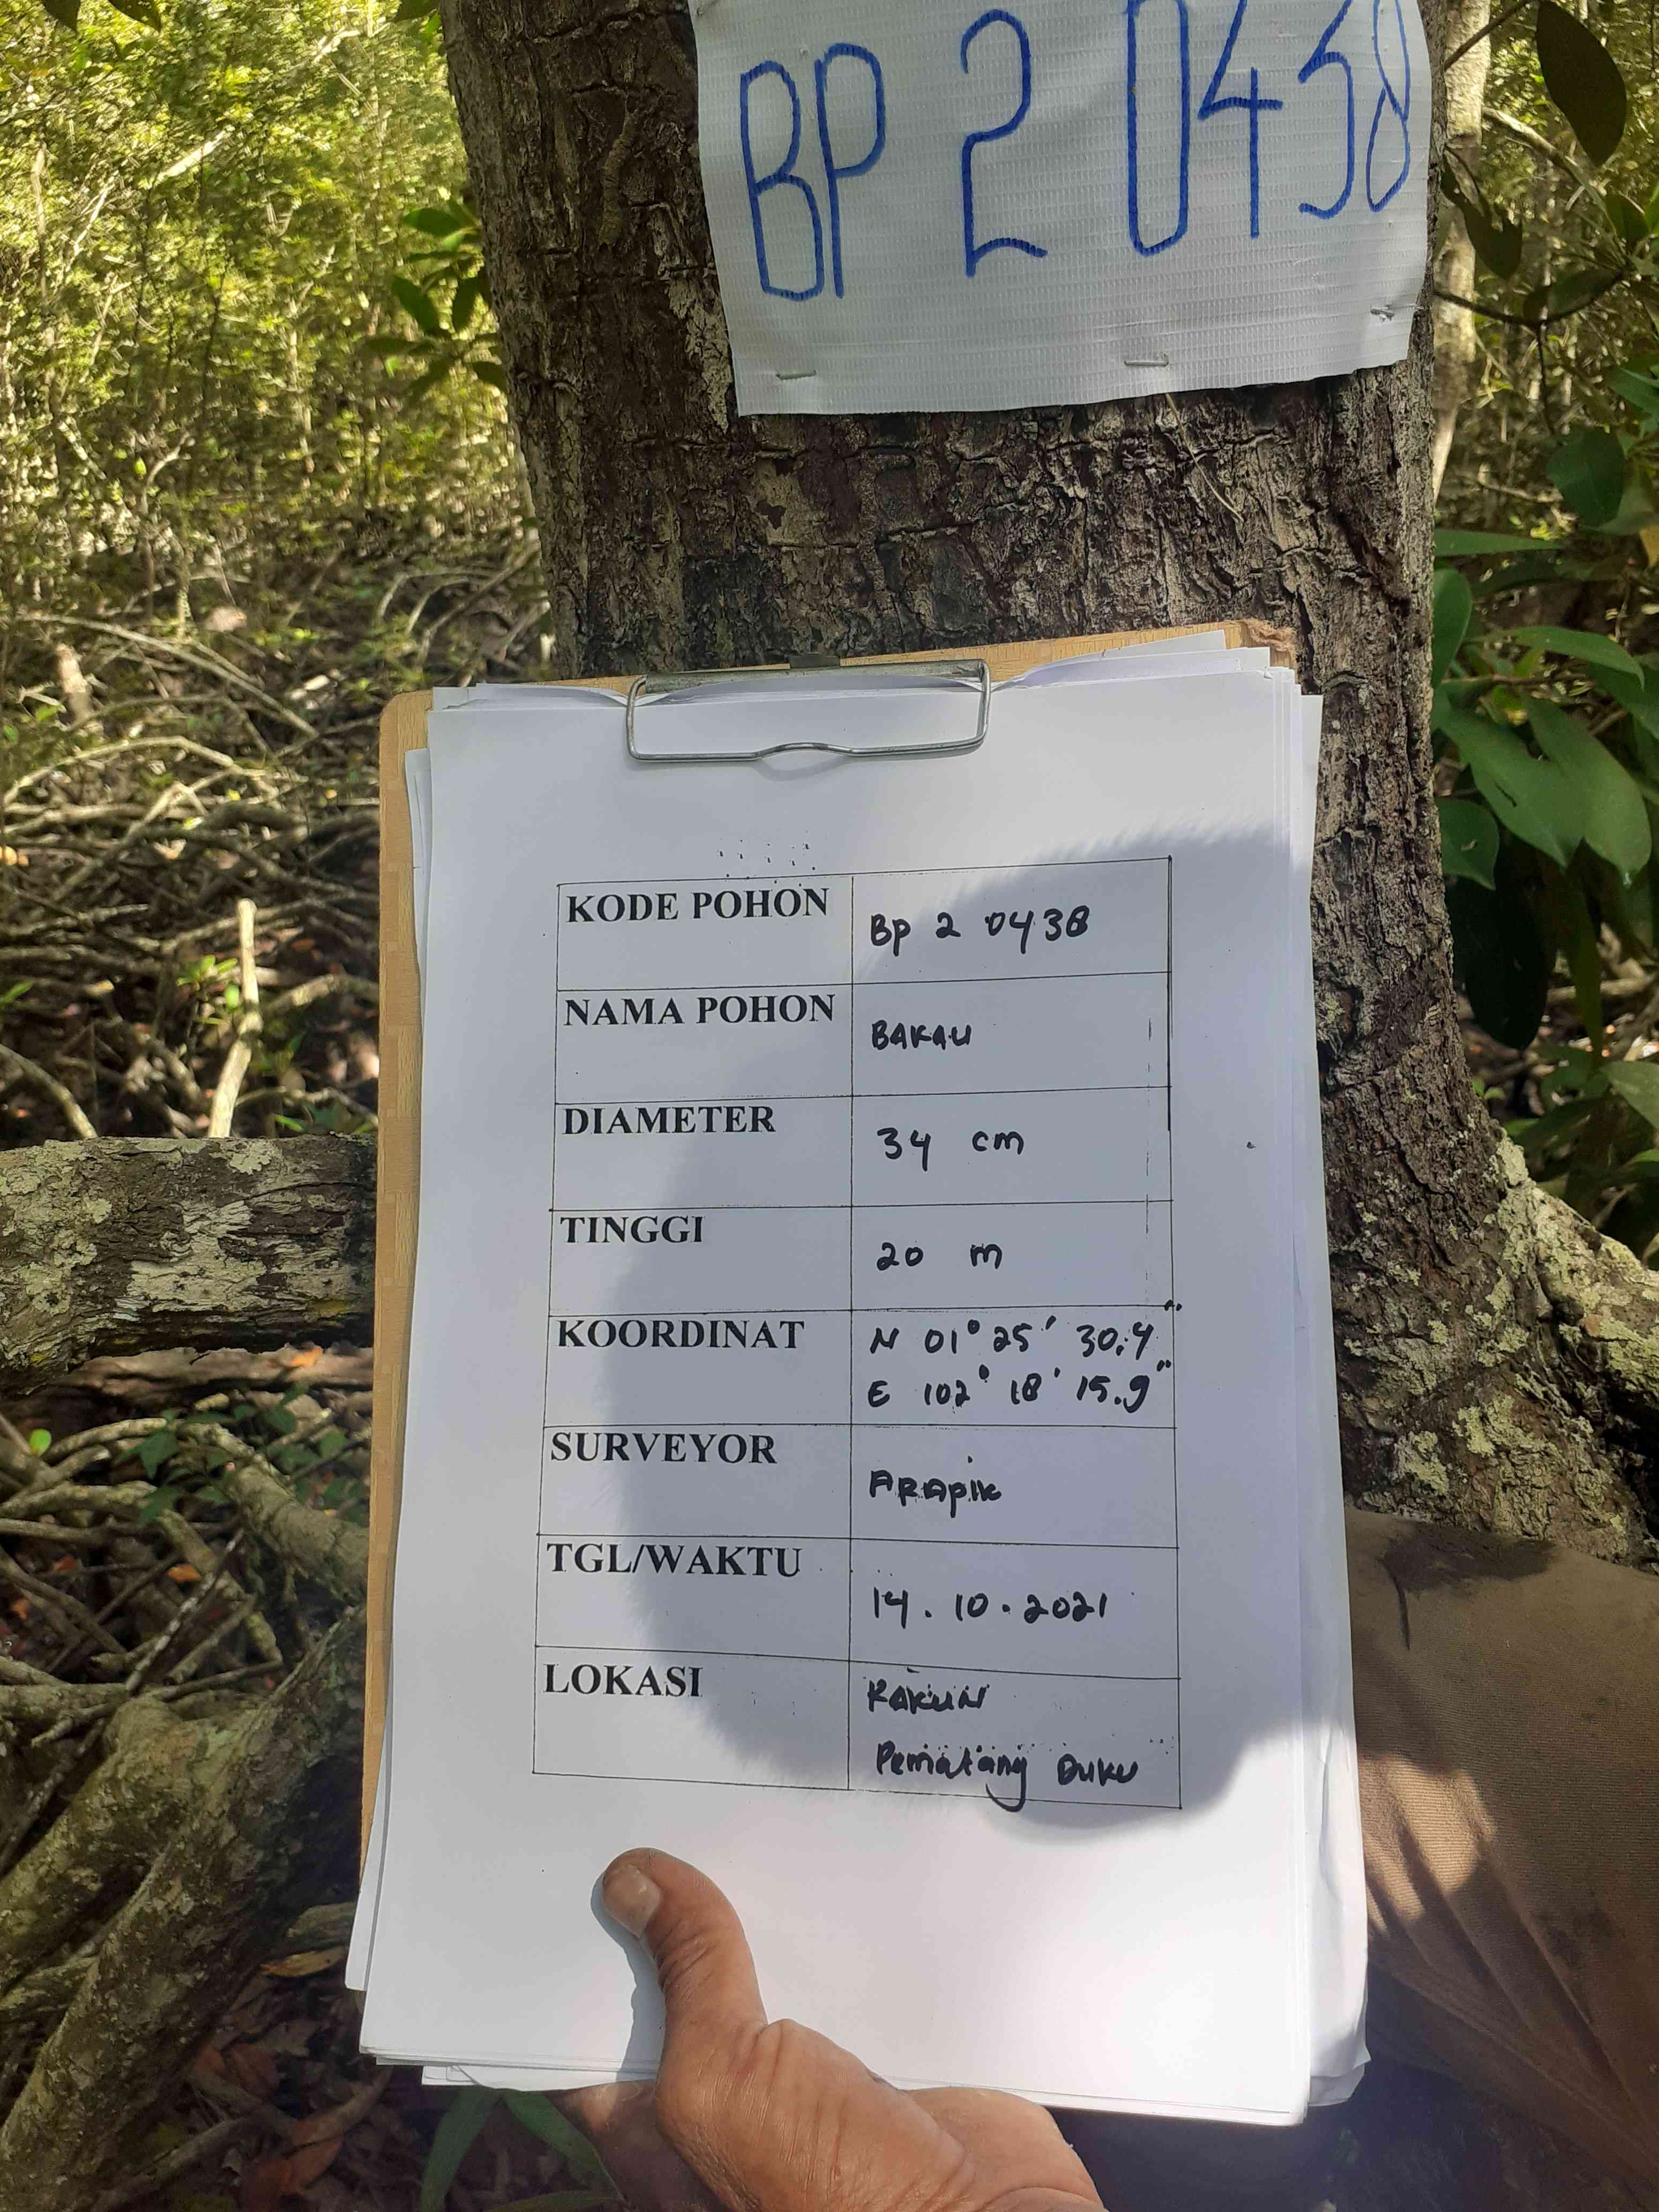 BP 2 0438
KODE POHON
Bp 2 0438
NAMA POHON
BAKAU
DIAMETER
34 cm
TINGGI
20 m
KOORDINAT
N 01° 25' 30.4"
E 102° 18' 15.9"
SURVEYOR
ARApik
TGL/WAKTU
14.10.2021
LOKASI
RAKUN
Pematang DUKU